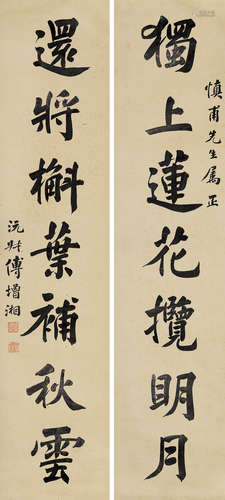 慎甫先生属正
獨上蓮花攬明月
還將槲葉補秋雲
沅尗傅增湘